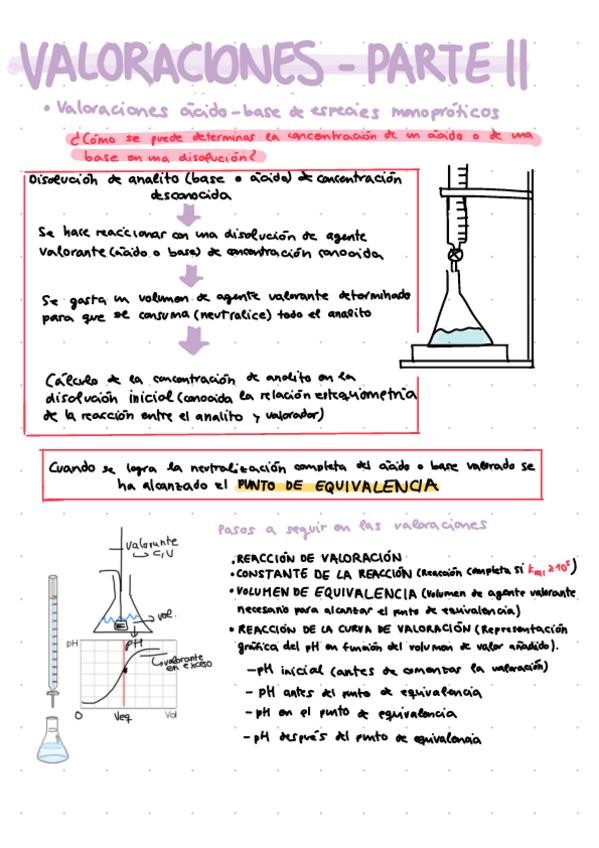 VALORACIONES - PARTE II
• Valoraciones ácido-base de especies monopróticos
¿Cómo se puede determinar la concentración de un ácido o de una
base en una disolución?
Disolución de analito (base o ácido) de concentración
desconocida
Se hace reaccionar con una disolución de agente
valorante (ácido o base) de concentración conocida
Se gasta un volumen de agente valorante determinado
para que se consuma (neutralice) todo el analito
Cálculo de la concentración de analito en la
disolución inicial (conocida la relación estequiometría
de la reacción entre el analito y valorador)
Cuando se logra la neutralización completa del ácido o base valorado se
ha alcanzado el PUNTO DE EQUIVALENCIA
Pasos a seguir en las valoraciones
• REACCIÓN DE VALORACIÓN
• CONSTANTE DE LA REACCIÓN (Reacción completa si
• VOLUMEN DE EQUIVALENCIA (Volumen de agente valorante
necesario para alcanzar el punto de equivalencia)
• REACCIÓN DE LA CURVA DE VALORACIÓN (Representación
gráfica del pH en función del volumen de valor añadido).
- pH inicial (antes de comenzar la valoración)
- pH antes del punto de equivalencia
- pH en el punto de equivalencia
- pH después del punto de equivalencia
valorante
C, V
vol.
pH
pH
valorante
en exceso
0 Veq Vol